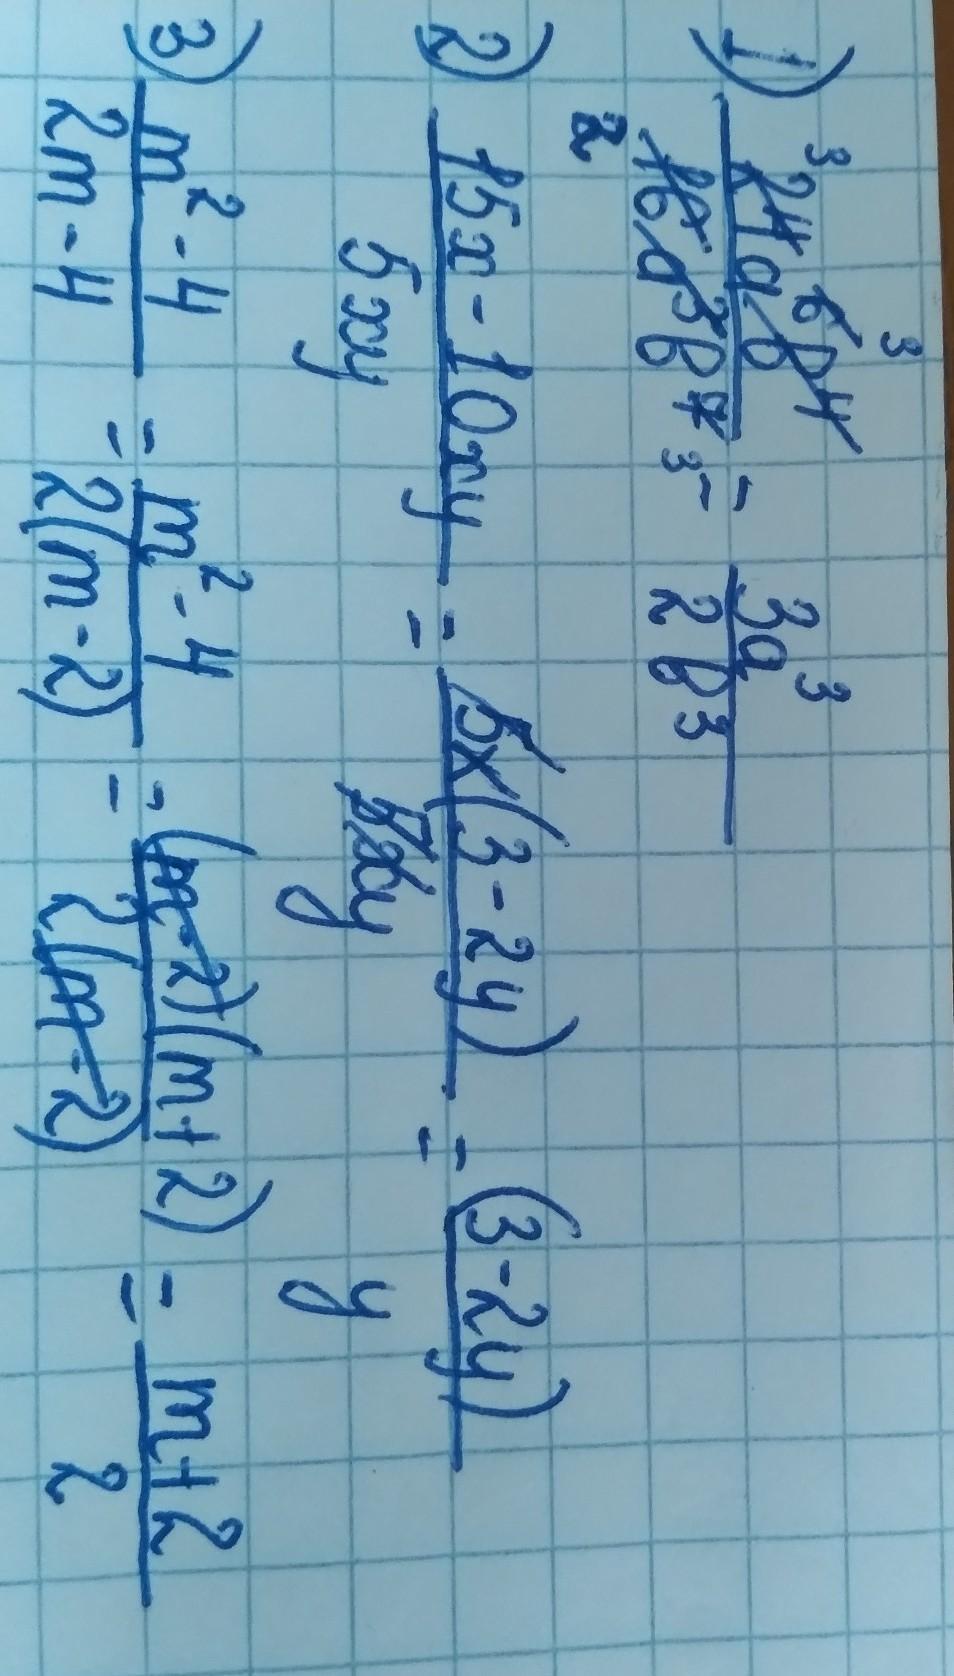 1) 24a⁶b⁴ / 16a³b⁷ = 3a³ / 2b³
2) 15x - 10xy / 5xy = 5x(3 - 2y) / 5xy = (3 - 2y) / y
3) m² - 4 / 2m - 4 = m² - 4 / 2(m - 2) = (m - 2)(m + 2) / 2(m - 2) = m + 2 / 2